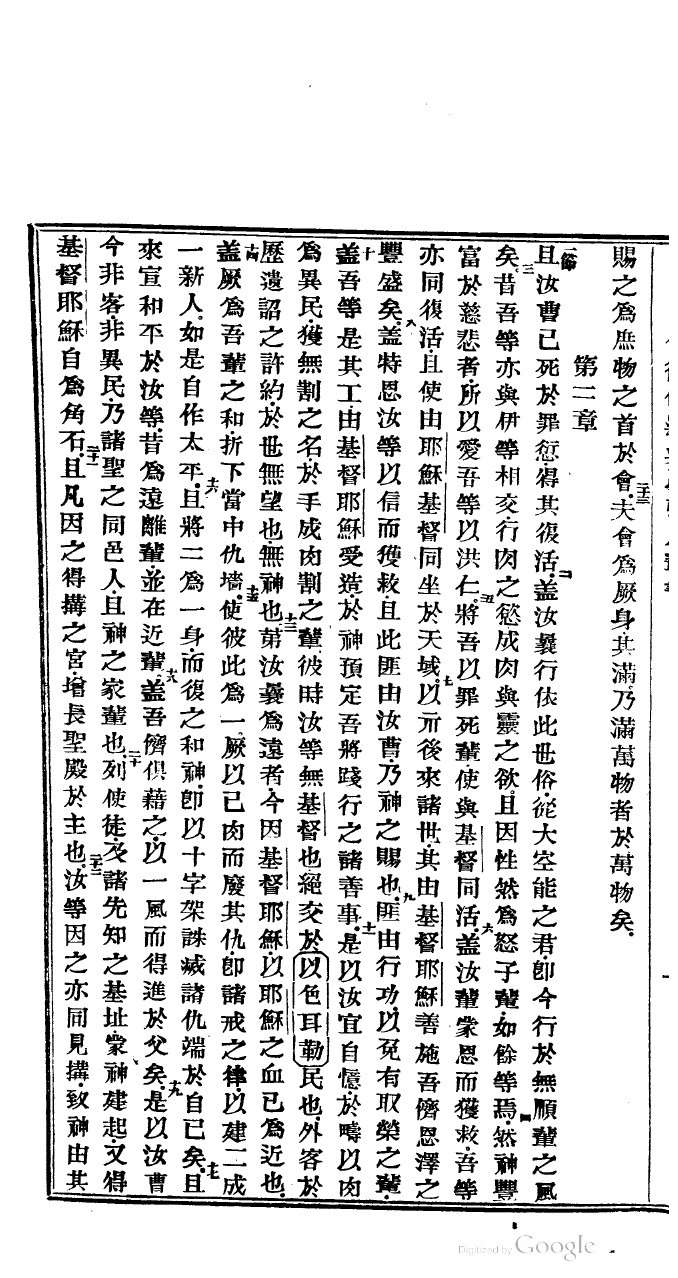 賜之爲庶物之首於會。二十三夫會爲厥身其滿。乃滿萬物者於萬物矣。
第二章
一節且汝曹已死於罪愆得其復活。二盖汝曩行依此世俗。從大空能之君。卽今行於無順輩之風
矣。三昔吾等亦與伊等相交行肉之慾成肉與靈之欲。且因性然爲怒子輩。如餘等焉。四然神豐
富於慈悲者。所以愛吾等以洪仁。五將吾以罪死輩。使與基督同活。六盖汝輩蒙恩而獲救。吾等
亦同復活。且使由耶穌基督同坐於天域。七以示後來諸世。其由基督耶穌善施吾儕恩澤之
豐盛矣。八盖特恩汝等以信而獲救。且此匪由汝曹。乃神之賜也。九匪由行功。以免有取榮之輩。
十盖吾等是其工。由基督耶穌受造。於神預定吾將踐行之諸善事。十一是以汝宜自憶於疇以肉
爲異民。獲無割之名。於手成肉割之輩。十二彼時汝等無基督也。絕交於以色耳勒民也。外客於
歷遺詔之許約。於世無望也。無神也。十三第汝曩爲遠者。今因基督耶穌。以耶穌之血已爲近也。
十四盖厥爲吾輩之和。折下當中仇墻。十五使彼此爲一。厥以己肉而廢其仇。卽諸戒之律。以建二成
一新人。如是自作太平。十六且將二爲一身。而復之和神。卽以十字架誅滅諸仇端於自己矣。十七且
來宣和平於汝等。昔爲遠離輩。並在近輩。十八盖吾儕俱藉之。以一風而得進於父矣。十九是以汝曹
今非客非異民。乃諸聖之同邑人。且神之家輩也。二十列使徒及諸先知之基址。蒙神建起。又得
基督耶穌自爲角石。二十一且凡因之得搆之宮。增長聖殿於主也。二十二汝等因之亦同見搆。致神由其
Digitized by Google